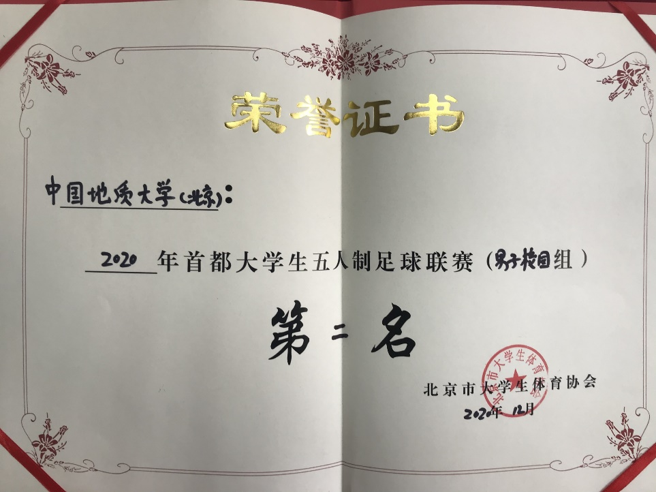 荣誉证书
中国地质大学(北京):
2020年首都大学生五人制足球联赛(男子校园组)
第二名
北京市大学生体育协会
2020年12月
北京市大学生体育协会